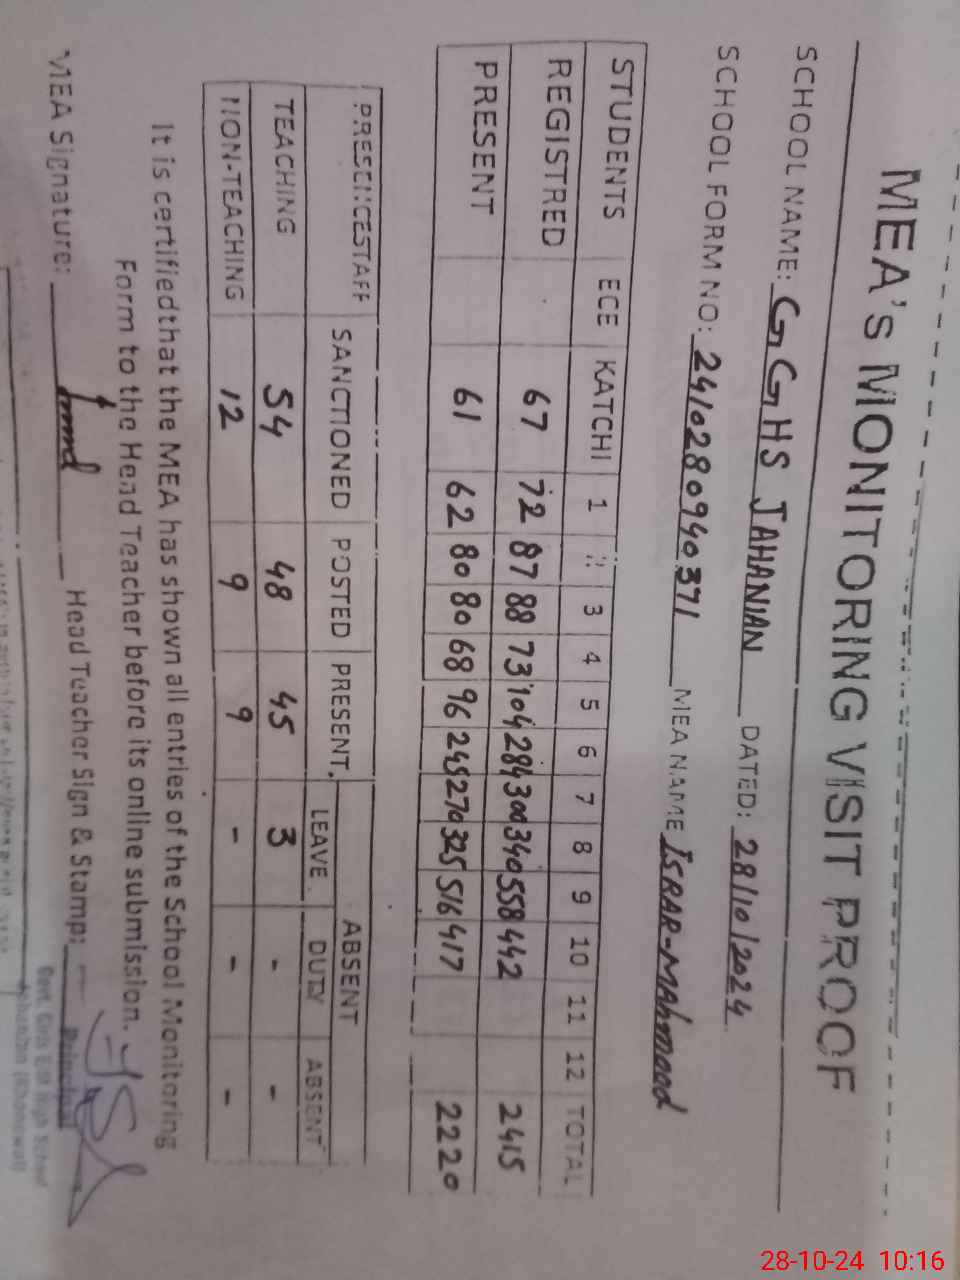 MEA's MONITORING VISIT PROOF
SCHOOL NAME: GGHS JAHANIAN DATED: 28/10/2024
SCHOOL FORM NO: 2410280940371 MEA NAME ISRAR-MAHMOOD
STUDENTS ECE KATCHI 1 2 3 4 5 6 7 8 9 10 11 12 TOTAL
REGISTRED 67 72 87 88 73 104 284 300 340 558 442 2415
PRESENT 61 62 80 80 68 96 245 270 325 516 417 2220
PRESENCESTAFF SANCTIONED POSTED PRESENT ABSENT
LEAVE DUTY ABSENT
TEACHING 54 48 45 3 - -
NON-TEACHING 12 9 9 - - -
It is certifiedthat the MEA has shown all entries of the School Monitoring
Form to the Head Teacher before its online submission.
MEA Signature: Head Teacher Sign & Stamp:
Principal
Govt. Girls E/M High School
Jahanian (Khanewal)
28-10-24 10:16